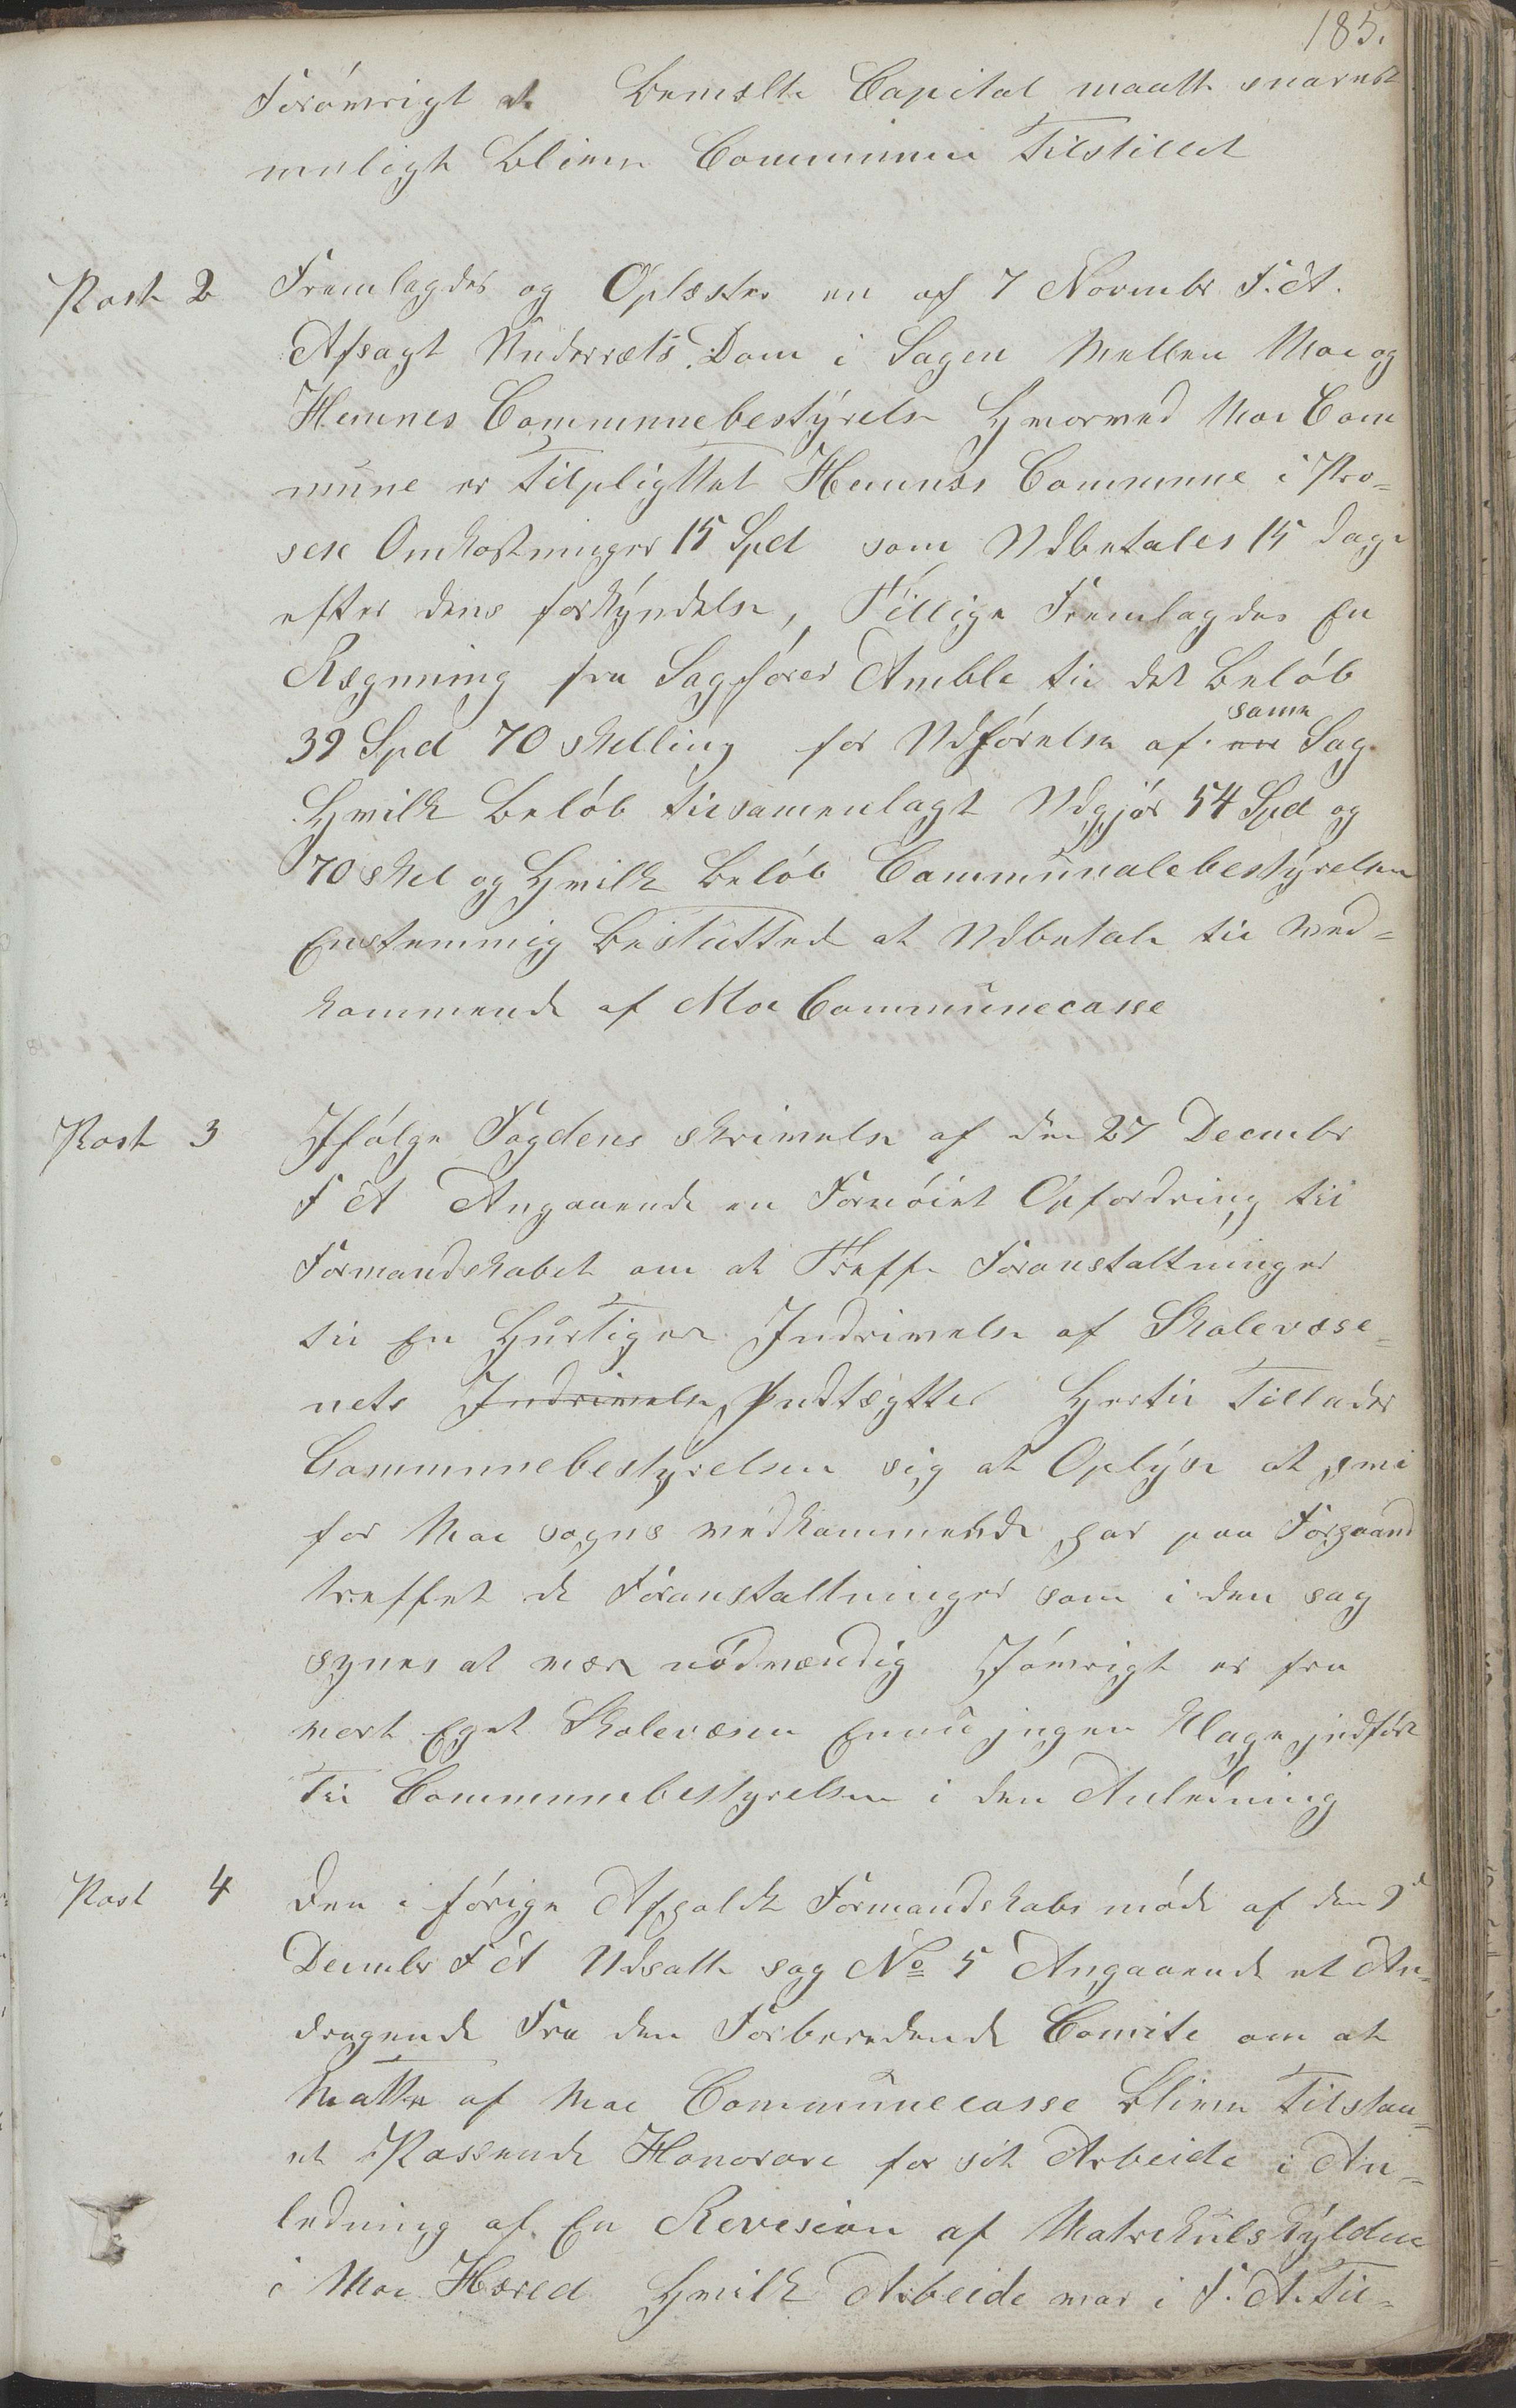 185.
Forövrigt at Bemælte Capital maatte snarest
muligt Blive Communen Tilstillet
Post 2 Fremlagdes og Oplæstes en af 7 Novembr F. A.
Afsagt Underrets Dom i Sagen Mellem Moe og
Hemnes Communebestyrelse Hvorved Moe Com
mune er Tilpligttet Hemnæs Commune i Pro=
sese Omkostninger 15 Spd som Udbetales 15 Dage
efter dens forkyndelse, Tillige Fremlagdes En
Rægnning fra Sagförer Amble til det Belöb
39 Spd 70 skelling for Udförelse af en same Sag
Hvilke Belöb tilsamenlagt Udgjör 54 Spd og
70 skel og Hvilke Belöb Communalebestyrelsen
Enstemmig Besluttede at Udbetale til Ved=
kommende af Moe Communecasse
Post 3 Ifölge Fogdens skrivelse af den 27 Decembr
F A Angaaende en Fornöiet Opfordring til
Formandskabet om at Treffe Foranstaltninger
til En Hurtigere Indrivelse af Skolevæse=
nets Indrivelse Indtægtter Hertil Tillader
Communebestyrelsen sig at Oplyse at vi
for Moe sogns vedkommende har paa Forhaand
treffet de Foranstaltninger som i den sag
synes at være nödvændig Iövrigt er fra
vort Eget Skolevæsen Ennu jngen Klage jndfört
Til Communebestyrelsen i den Anledning
Post 4 Den i förige Afholdte Formandskabs möde af den 9d
Decembr F A Udsatte sag No 5 Angaaende et An=
dragende Fra den Forberedende Comite om at
Maatte af Moe Communecasse Blive Tilstaa=
et Passende Honorare for sit Arbeide i An=
ledning af En Revesion af Matrekulskylden
i Moe Hered Hvilke Arbeide var i F. A. Til=